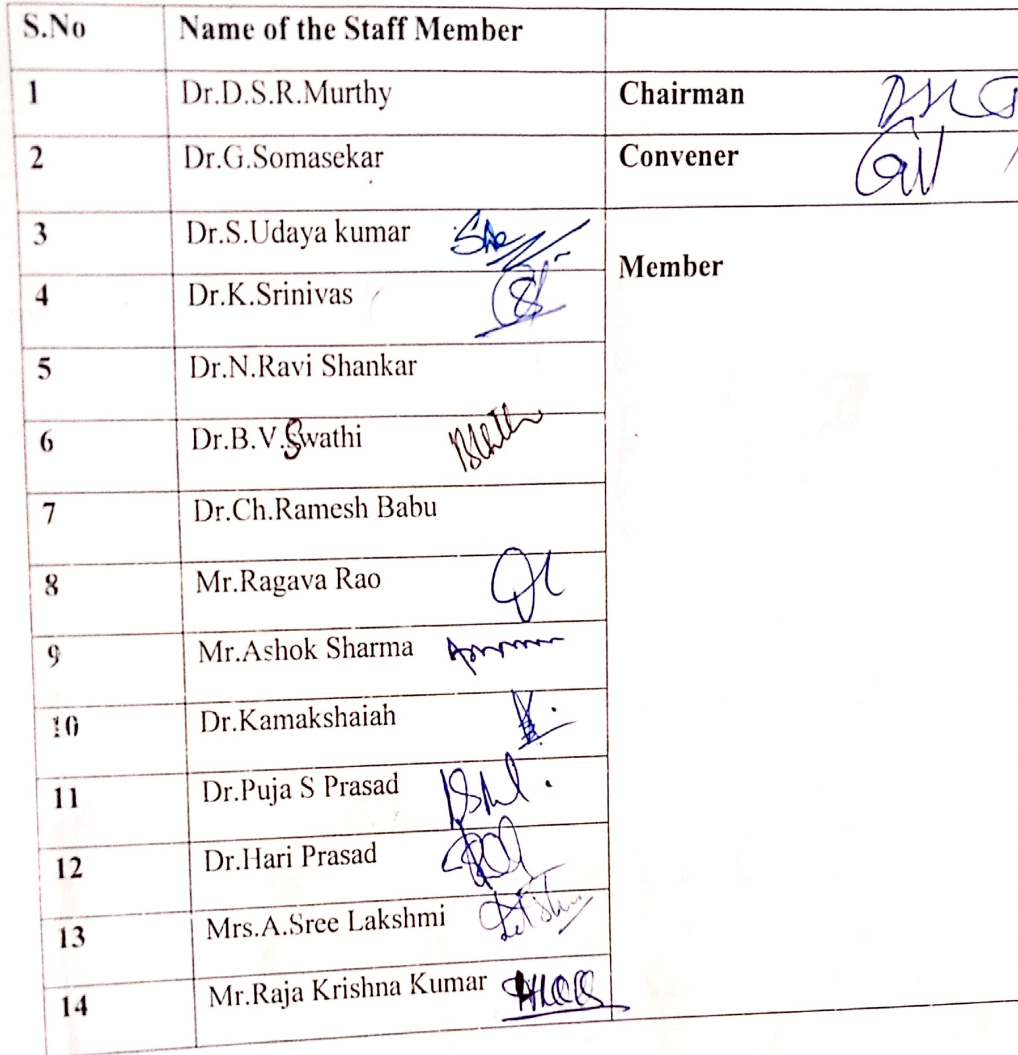 S.No Name of the Staff Member
1 Dr.D.S.R.Murthy Chairman
2 Dr.G.Somasekar Convener
3 Dr.S.Udaya kumar
Member
4 Dr.K.Srinivas
5 Dr.N.Ravi Shankar
6 Dr.B.V.Swathi
7 Dr.Ch.Ramesh Babu
8 Mr.Ragava Rao
9 Mr.Ashok Sharma
10 Dr.Kamakshaiah
11 Dr.Puja S Prasad
12 Dr.Hari Prasad
13 Mrs.A.Sree Lakshmi
14 Mr.Raja Krishna Kumar